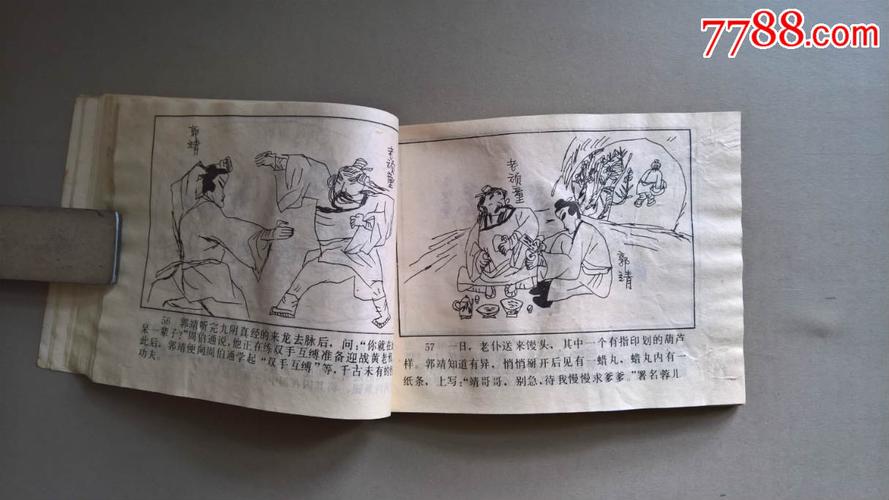 7788.com
郭
靖
老顽童
56 郭靖听完九阴真经的来龙去脉后，问：“你就在
呆一辈子？”周伯通说，他正在练双手互缚准备迎战黄老
此后，郭靖便向周伯通学起“双手互缚”等，千古未有的
功夫。
老顽童
郭靖
57 一日，老仆送来馒头，其中一个有指印划的葫芦
样。郭靖知道有异，悄悄掰开后见有一蜡丸，蜡丸内有一
纸条，上写：“靖哥哥，别急，待我慢慢求爹爹。”署名蓉儿